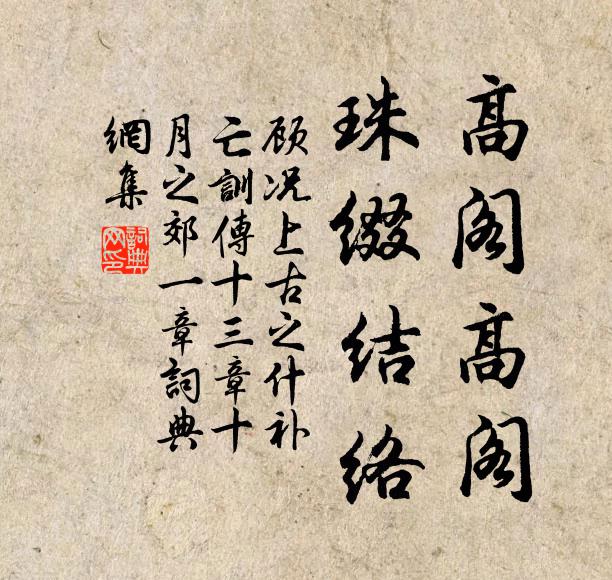 高阁高阁
珠缀结络
顾况上古之什补
亡訓傳十三章十
月之郊一章詞典
網集
詞典网印